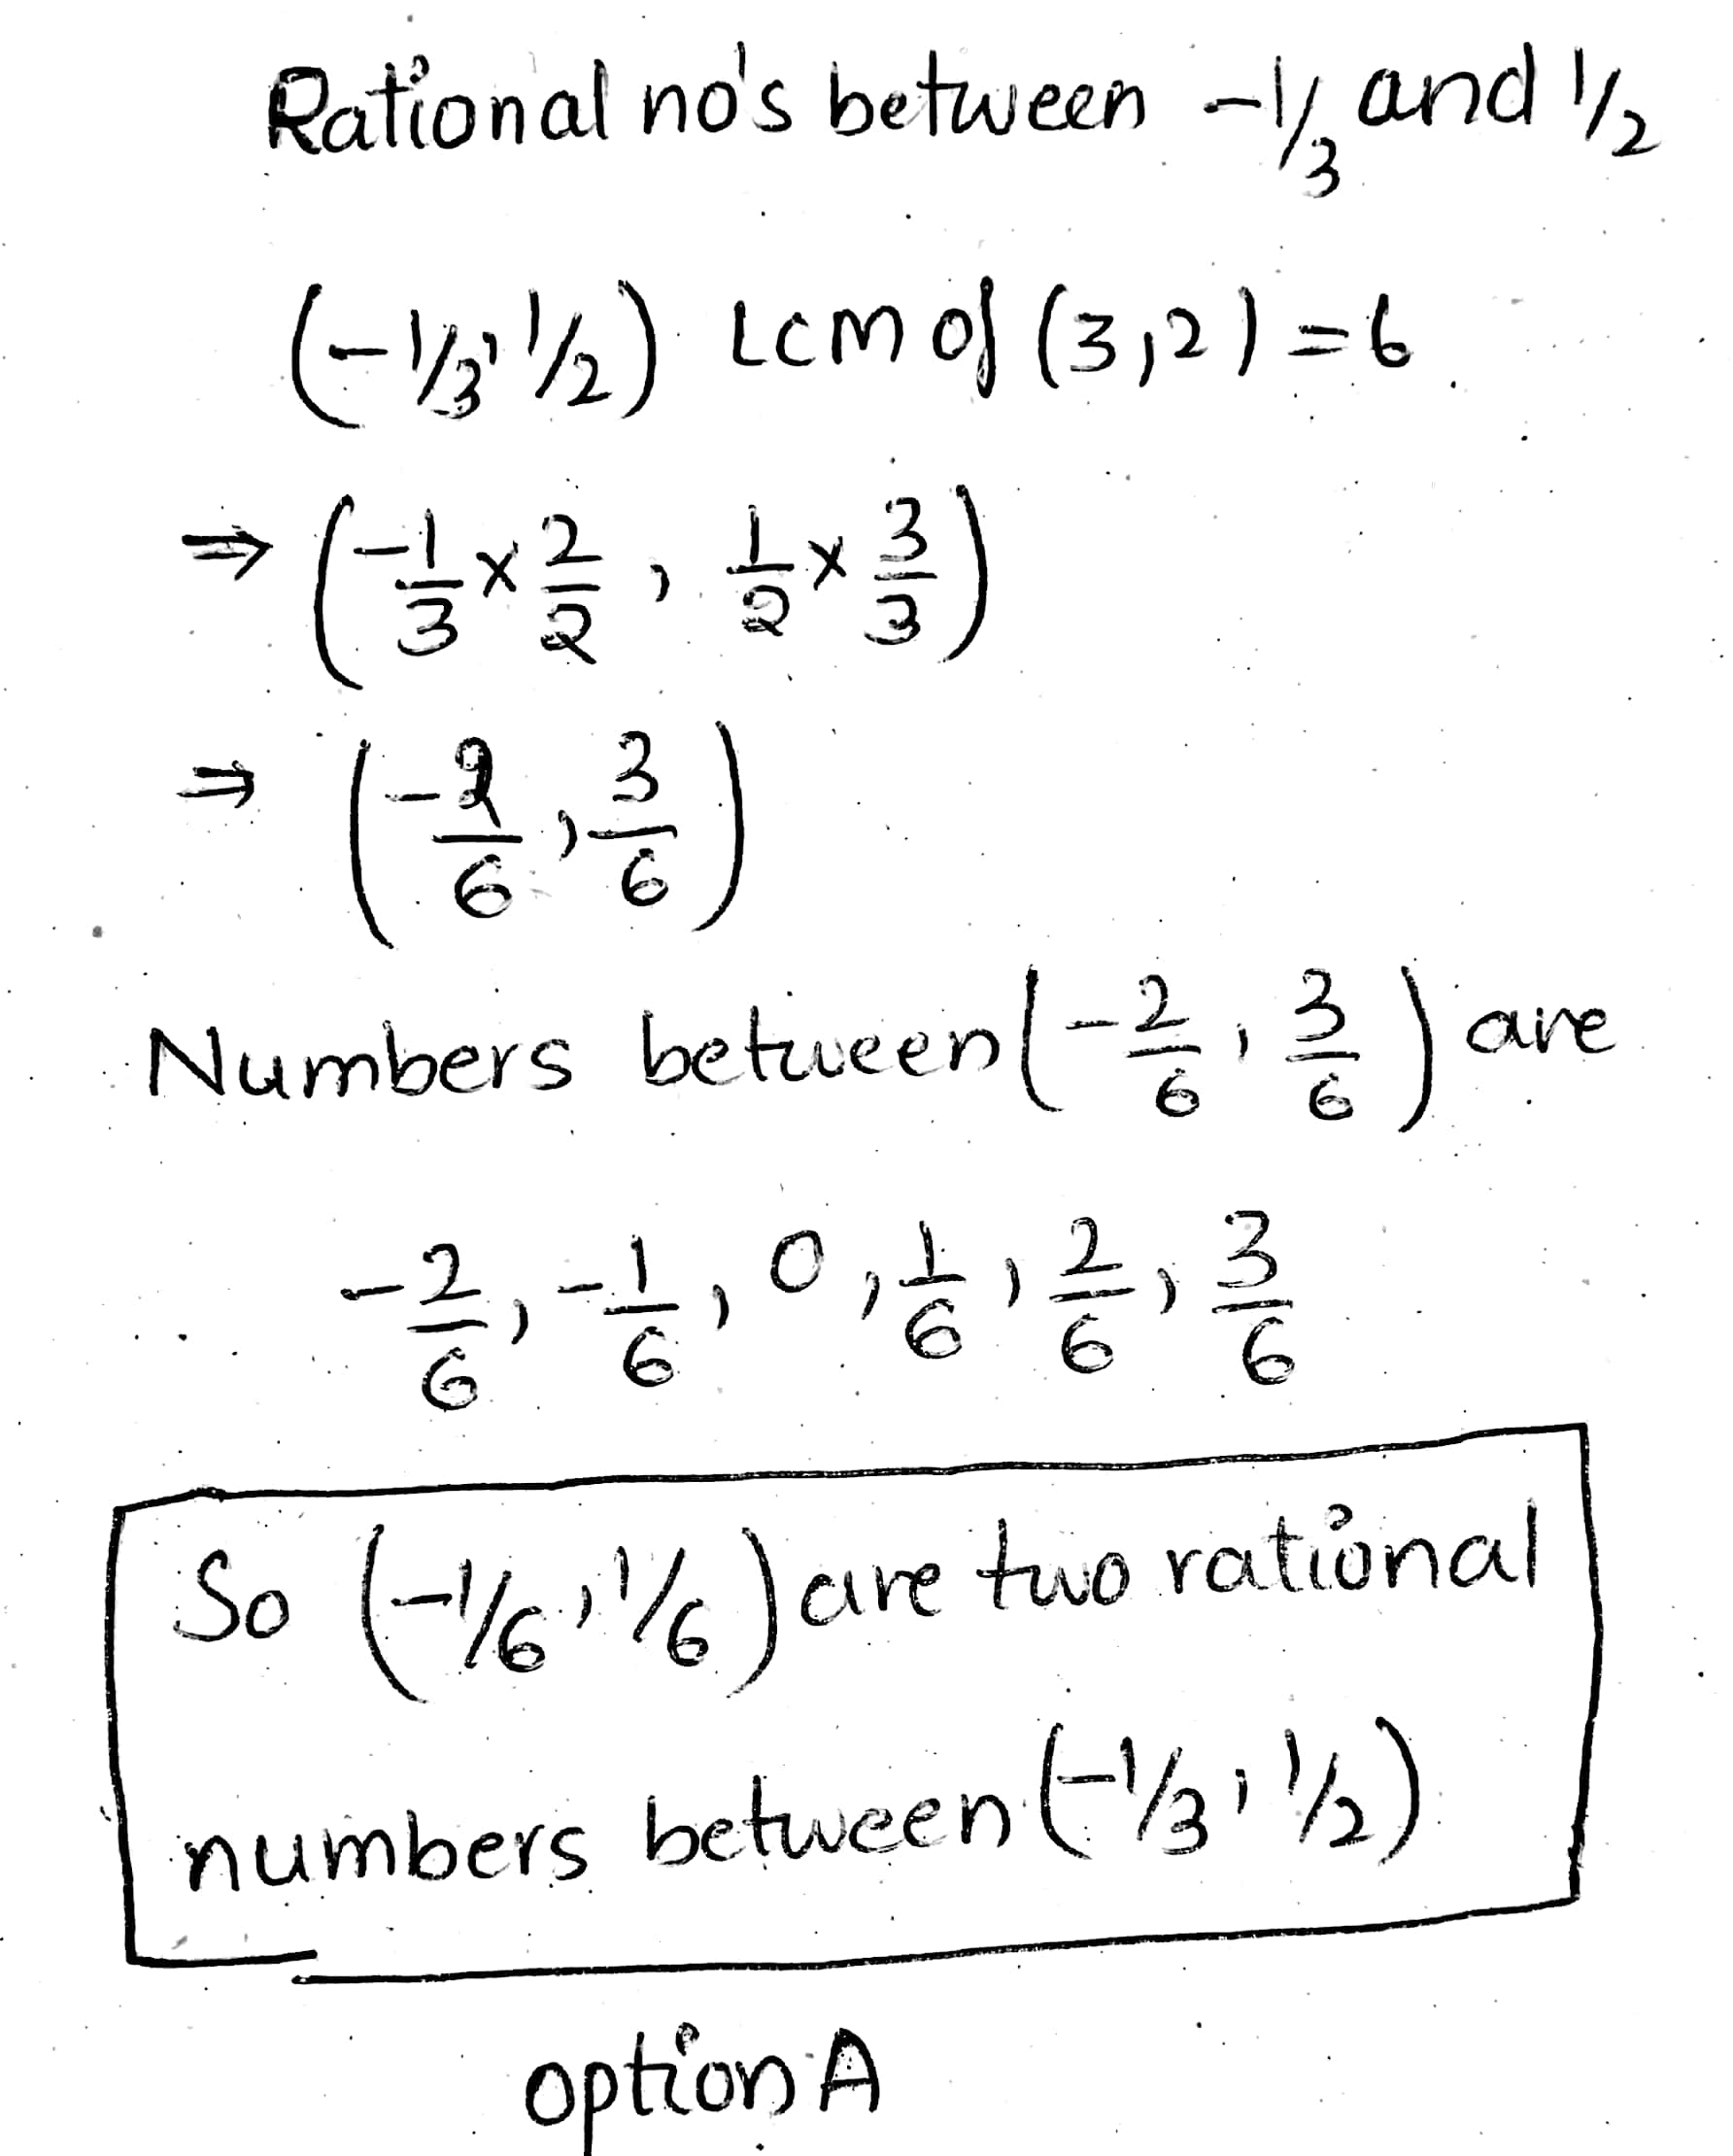 Rational no's between -1/3 and 1/2
(-1/3, 1/2) LCM of (3,2) = 6
⇒ (-1/3 × 2/2, 1/2 × 3/3)
⇒ (-2/6, 3/6)
Numbers between (-2/6, 3/6) are
-2/6, -1/6, 0, 1/6, 2/6, 3/6
So (-1/6, 1/6) are two rational
numbers between (-1/3, 1/2)
option A